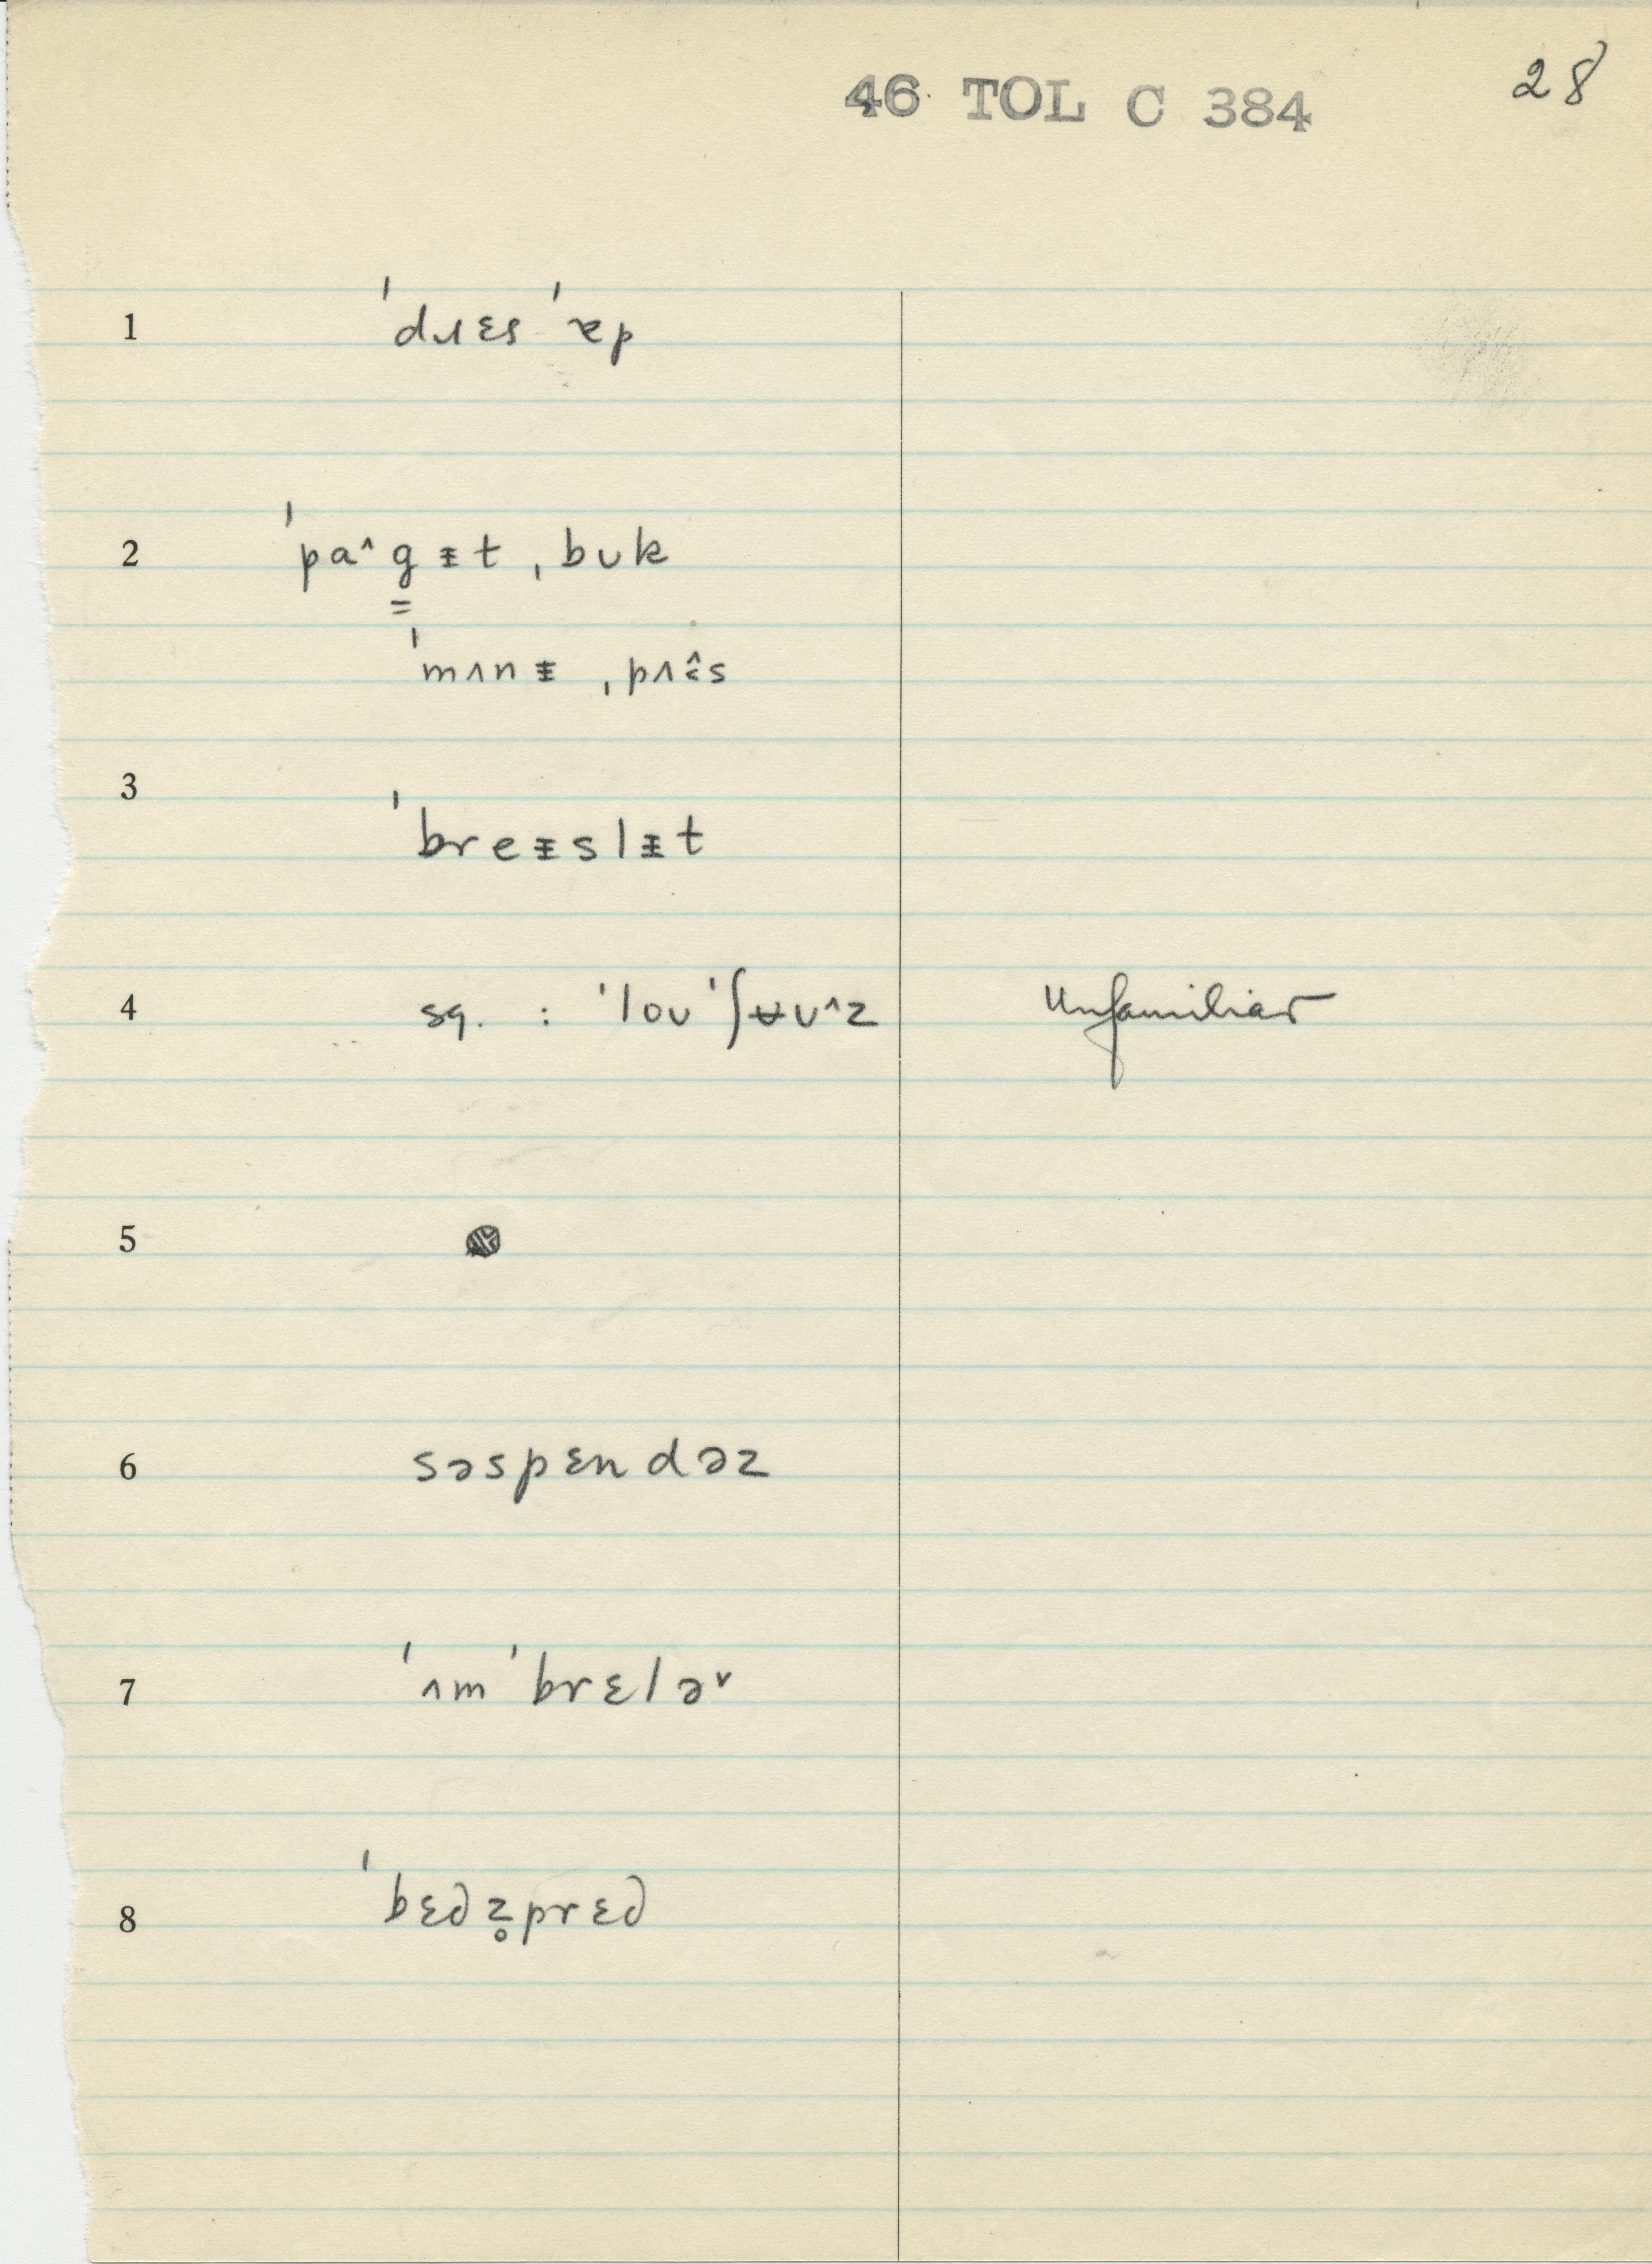 46 TOL C 384 28
1 ˈdɹɛs ˈæp
2 ˈpa^g̳ᵻt ˌbʊk
ˈmʌnᵻ ˌpʌɛ̂s
3 ˈbreᵻslᵻt
4 sq. : ˈloʊ ˈʃʉʊ^z Unfamiliar
5
6 səspɛndəz
7 ˈʌm ˈbrɛlə˅
8 ˈbɛdz̥prɛd